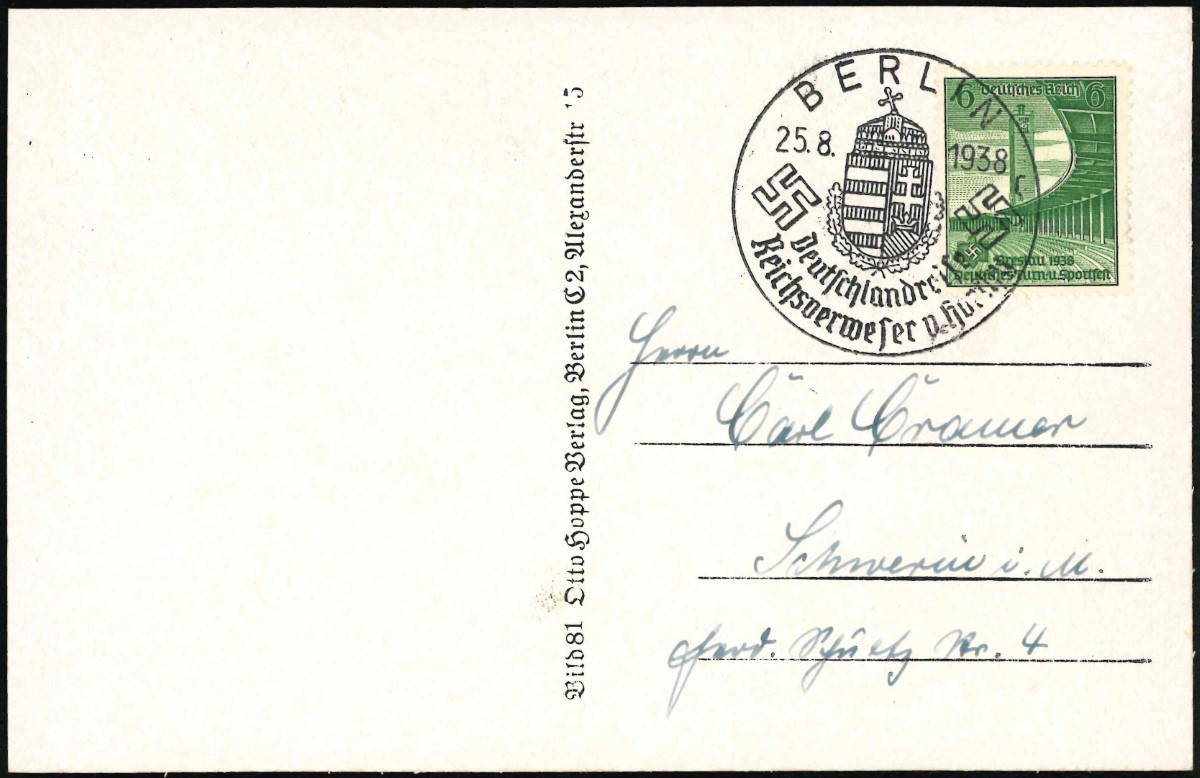 BERLIN
25.8. 1938
Deutschlandreise
Reichsverweser v. Horthy
6 Deutsches Reich 6
Breslau 1938
Deutsches Turn-u. Sportfest
Bild 81 Otto Hoppe Verlag, Berlin C 2, Alexanderstr
Herrn
Carl Cramer
Schwerin i. M.
Ferd. Schultz Str. 4